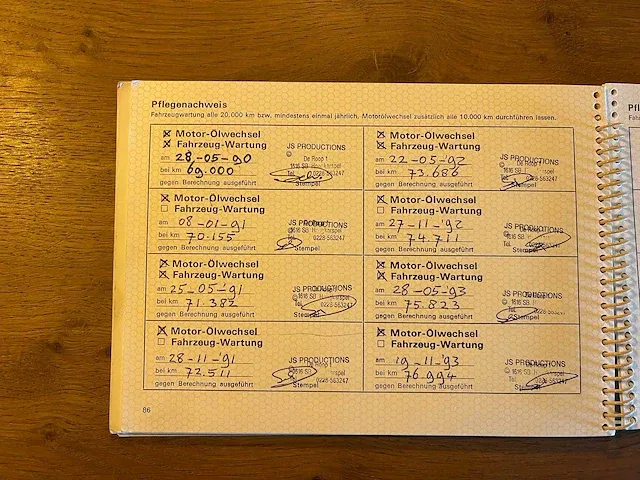 Pflegenachweis
Fahrzeugwartung alle 20.000 km bzw. mindestens einmal jährlich, Motorölwechsel zusätzlich alle 10.000 km durchführen lassen.
☒ Motor-Ölwechsel
☒ Fahrzeug-Wartung
am 28-05-90
bei km 69.000
gegen Berechnung ausgeführt
JS PRODUCTIONS
De Roop 1
1616 SB
0228-563247
Stempel
☒ Motor-Ölwechsel
☐ Fahrzeug-Wartung
am 08-01-91
bei km 70.155
gegen Berechnung ausgeführt
JS PRODUCTIONS
1616 SB
Tel. 0228-563247
☒ Motor-Ölwechsel
☒ Fahrzeug-Wartung
am 25-05-91
bei km 71.382
gegen Berechnung ausgeführt
JS PRODUCTIONS
1616 SB
Tel. 0228-563247
Stempel
☒ Motor-Ölwechsel
☐ Fahrzeug-Wartung
am 28-11-'91
bei km 72.511
gegen Berechnung ausgeführt
JS PRODUCTIONS
1616 SB
0228-563247
Stempel
☒ Motor-Ölwechsel
☒ Fahrzeug-Wartung
am 22-05-92
bei km 73.686
gegen Berechnung ausgeführt
JS PRODUCTIONS
De Roop 1
1616 SB
Tel. 0228-563247
Stempel
☒ Motor-Ölwechsel
☐ Fahrzeug-Wartung
am 27-11-'92
bei km 74.711
gegen Berechnung ausgeführt
JS PRODUCTIONS
1616 SB
Tel. 0228-563247
☒ Motor-Ölwechsel
☒ Fahrzeug-Wartung
am 28-05-93
bei km 75.823
gegen Berechnung ausgeführt
JS PRODUCTIONS
1616 SB
Tel. 0228-563247
☒ Motor-Ölwechsel
☐ Fahrzeug-Wartung
am 19-11-'93
bei km 76.994
gegen Berechnung ausgeführt
JS PRODUCTIONS
1616 SB
Tel. 0228-563247
Stempel
86